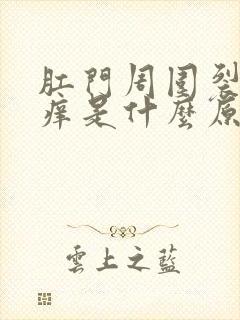 肛門周圍裂
癢是什麼原
雲上之藍